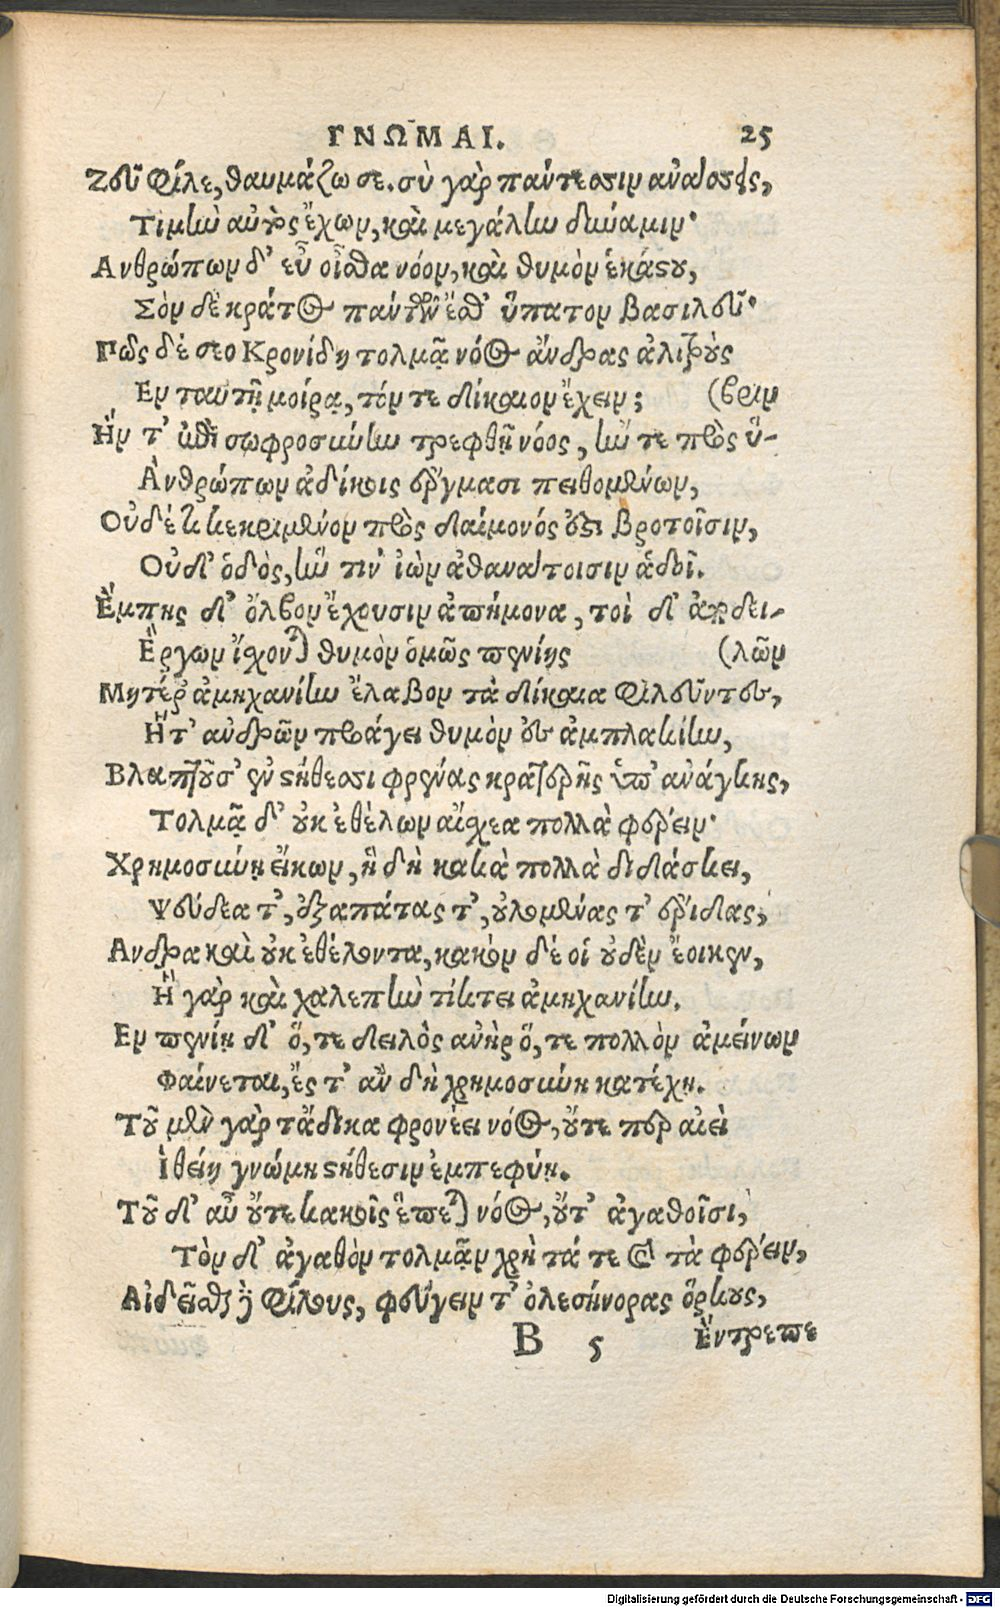 ΓΝΩΜΑΙ. 25
Ζεῦ φίλε, θαυμάζω σε. σὺ γὰρ πάντεσσιν ἀνάσσεις,
Τιμὴν αὐτὸς ἔχων, καὶ μεγάλην δύναμιν·
Ανθρώπων δ' εὖ οἶσθα νόον, καὶ θυμὸν ἑκάστου,
Σὸν δὲ κράτος πάντων ἔσθ' ὕπατον βασιλεῦ·
Πῶς δέ σεο Κρονίδη τολμᾷ νόος ἄνδρας ἀλιτροὺς
Εν ταυτῇ μοίρᾳ, τόν τε δίκαιον ἔχειν; (βριν
Ἤν τ' ἐπὶ σωφροσύνην τρεφθῇ νόος, ἤν τε πρὸς ὕ-
Ἀνθρώπων ἀδίκοις ἔργμασι πειθομένων,
Οὐδέ τι κεκριμένον πρὸς δαίμονός ἐστι βροτοῖσιν,
Οὐδ' ὁδὸς, ἥν τιν' ἰὼν ἀθανάτοισιν ἅδοι.
Ἔμπης δ' ὄλβον ἔχουσιν ἀπήμονα, τοὶ δ' ἀπὸ δει-
Ἔργων ἴσχονται θυμὸν ὁμῶς πενίης (λῶν
Μητέρ' ἀμηχανίην ἔλαβον τὰ δίκαια φιλεῦντες,
Ἥτ' ἀνδρῶν προάγει θυμὸν ἐς ἀμπλακίην,
Βλάπτουσ' ἐν στήθεσσι φρένας κρατερῆς ὑπ' ἀνάγκης,
Τολμᾷ δ' οὐκ ἐθέλων αἴσχεα πολλὰ φέρειν·
Χρημοσύνῃ εἴκων, ἣ δὴ κακὰ πολλὰ διδάσκει,
Ψεύδεα τ', ἐξαπάτας τ', οὐλομένας τ' ἔριδας,
Ανδρα καὶ οὐκ ἐθέλοντα, κακὸν δέ οἱ οὐδὲν ἔοικεν,
Ἣ γὰρ καὶ χαλεπὴν τίκτει ἀμηχανίην.
Εν πενίῃ δ' ὅ, τε δειλὸς ἀνὴρ ὅ, τε πολλὸν ἀμείνων
Φαίνεται, ἔς τ' ἂν δὴ χρημοσύνη κατέχῃ.
Τοῦ μὲν γὰρ τἄδικα φρονέει νόος, οὔτε περ αἰεὶ
Ἰθείη γνώμη στήθεσιν ἐμπεφύῃ.
Τοῦ δ' αὖ οὔτε κακοῖς ἕπεται νόος, οὔτ' ἀγαθοῖσι,
Τὸν δ' ἀγαθὸν τολμᾷν χρὴ τά τε καὶ τὰ φέρειν,
Αἰδεῖσθαι δὲ φίλους, φεύγειν τ' ὀλεσήνορας ὅρκους,
B 5 Ἔντρεπε
Digitalisierung gefördert durch die Deutsche Forschungsgemeinschaft - DFG